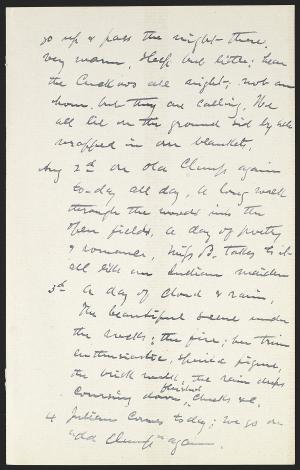 go up & pass the night there,
very warm, sleep but little; hear
the Cuckoos all night, not an
hour but they are calling, We
all lie on the ground side by side
wrapped in our blankets,
Aug 2d On Old Clump again
to-day all day, a long walk
through the woods into the
open fields, a day of poetry
& romance, Miss B. takes to it
all like an Indian maiden
3d A day of cloud & rain,
The beautiful scene under
the rocks; the fire, her trim
enthusiastic, figure,
the wet, the rain drops
coursing down flushed cheeks &c.
4 Julian comes to-day; we go on
"Old Clump" again.